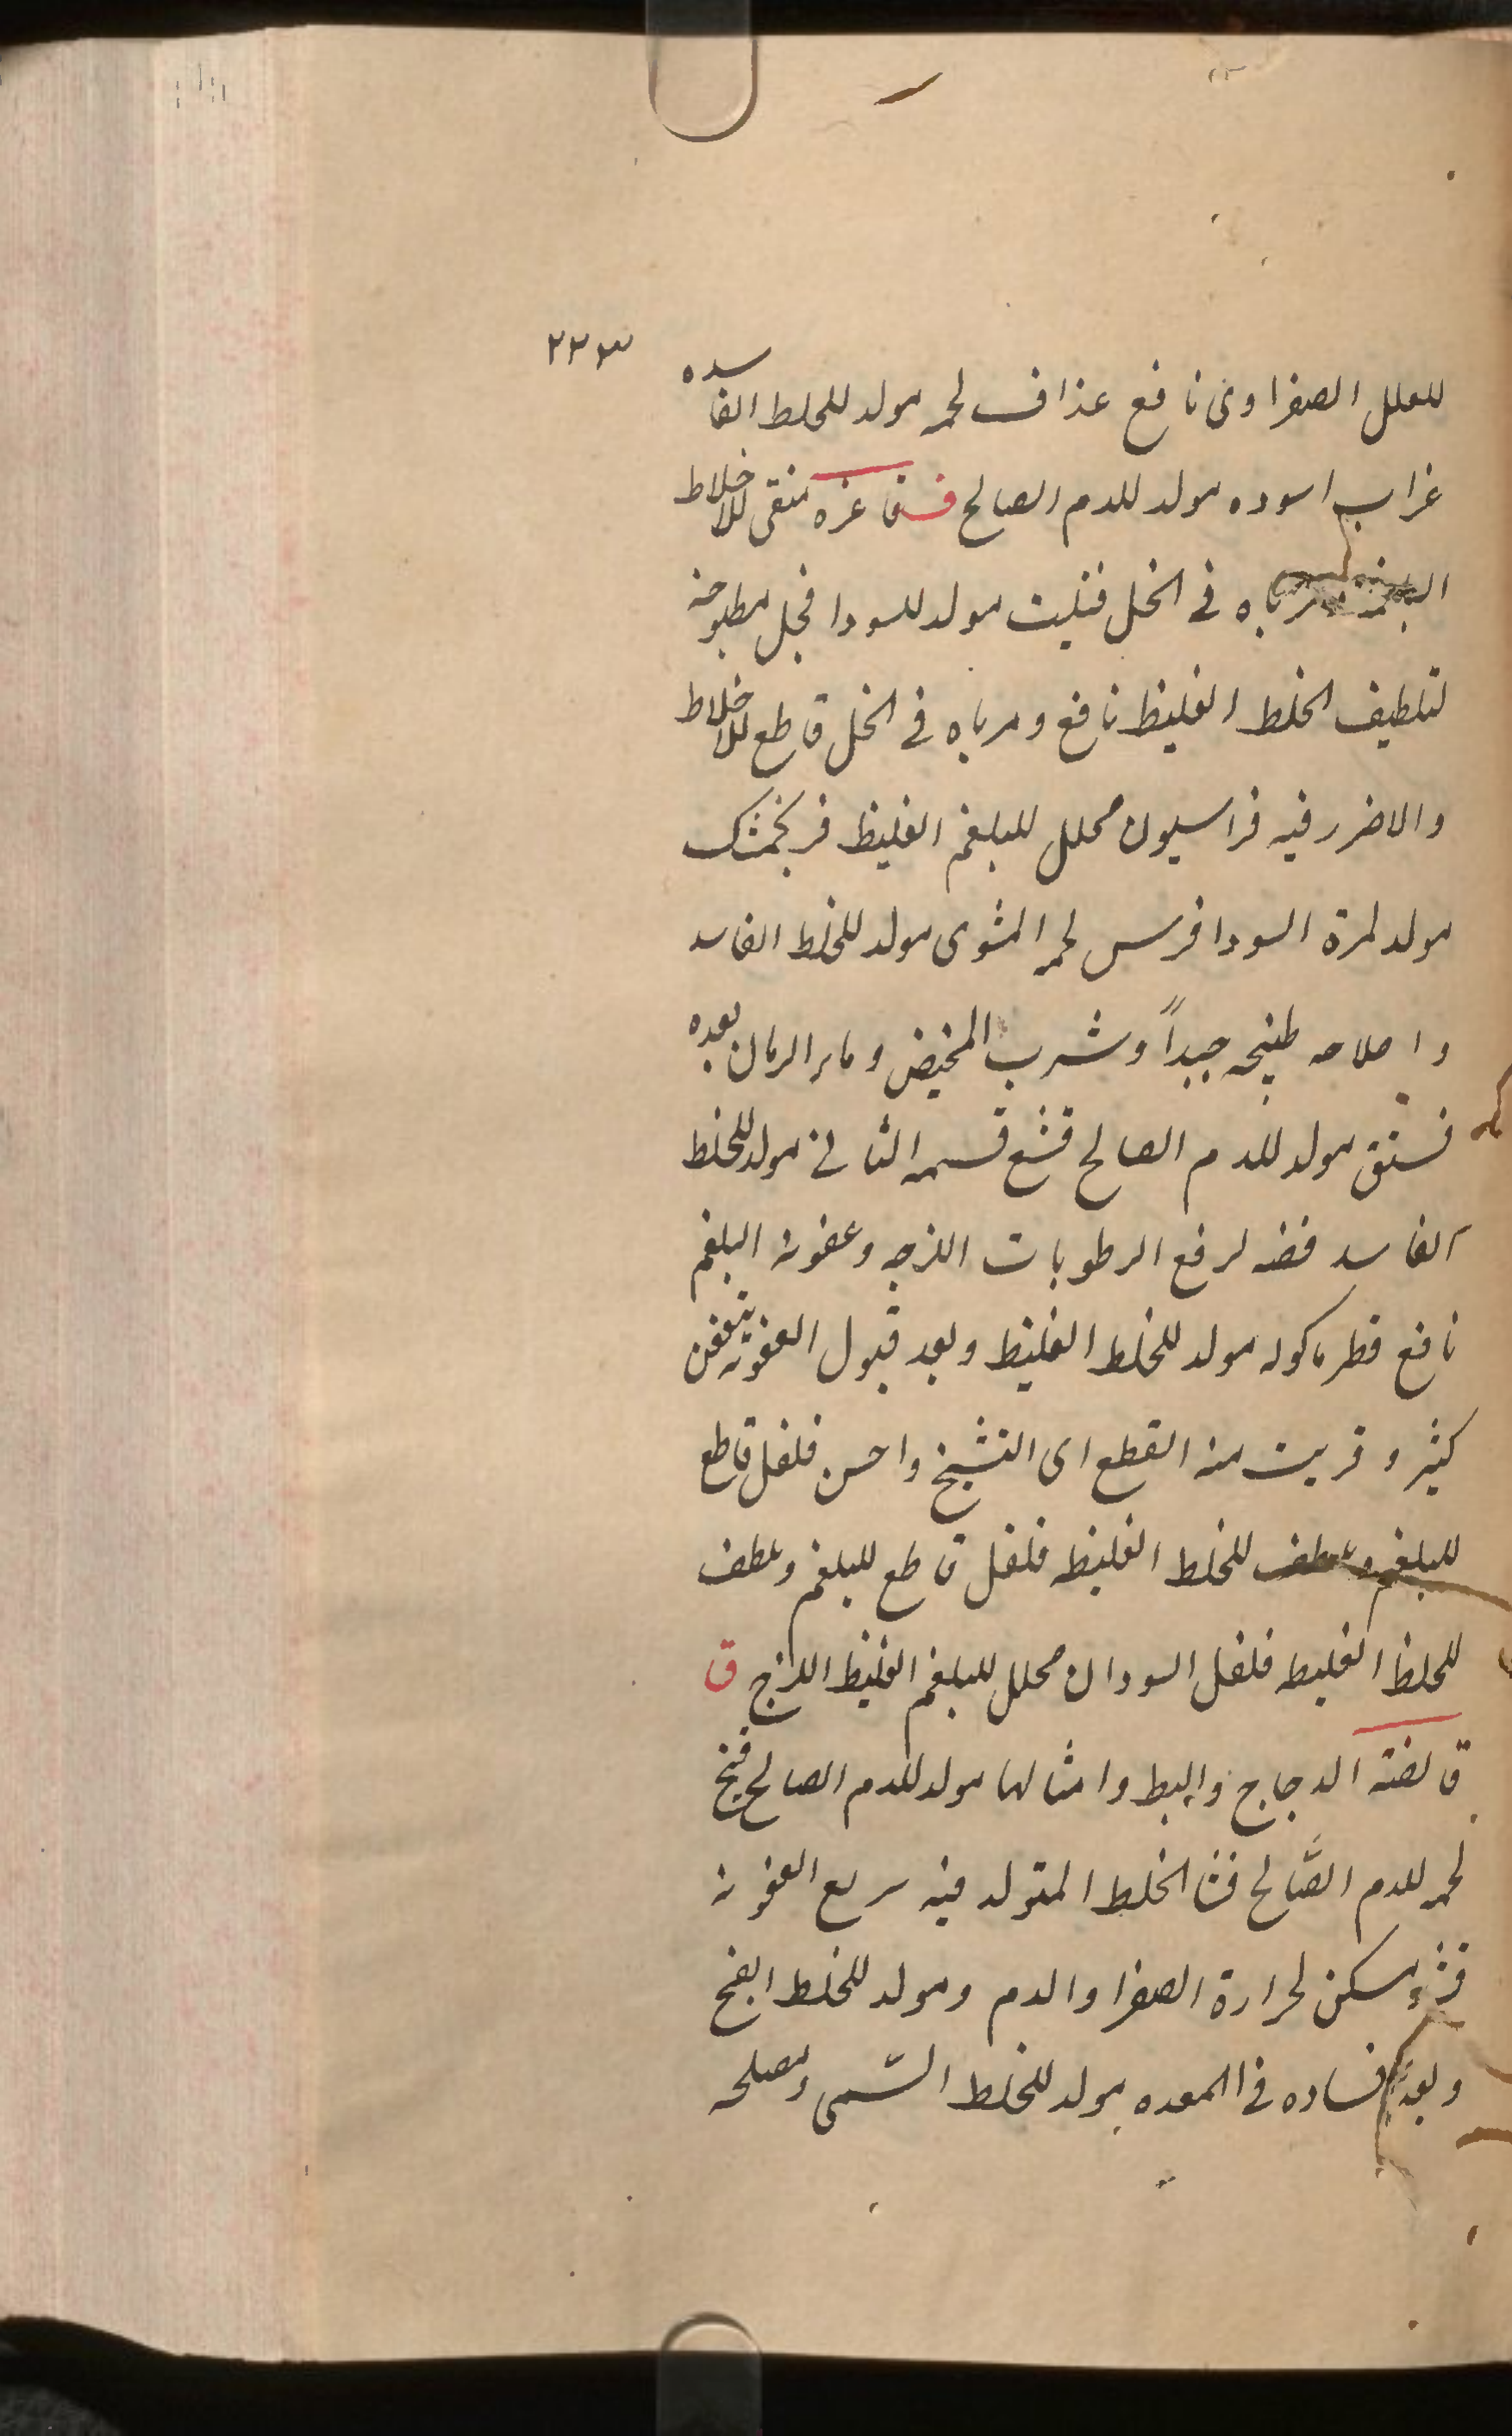 ٢٢٣
للعلل الصفراوى نافع غداف لحمه مولد للخلط الفاسده
غراب اسوده مولد للدم الصالح ف فاغره منقى للاخلاط
مرباه فى الخل فتيت مولد للسودا فجل مطبوخه
لتلطيف الخلط الغليظ نافع ومرباه فى الخل قاطع للاخلاط
والاضرر فيه فراسيون محلل للبلغم الغليظ فرنجمشك
مولد لمرة السودا فرس لحمه المشوى مولد للخلط الفاسد
واصلاحه طبخه جيداً وشرب المخيض وماء الرمان بعده
فستق مولد للدم الصالح فشغ قسمه الثانى مولد للخلط
الفاسد فضه لرفع الرطوبات اللزجه وعفونة البلغم
نافع فطر ماكوله مولد للخلط الغليظ وبعد قبول العفونة يتعفن
كثير وقريب منه القطع اى التشيخ واحسن فلفل قاطع
للبلغم وملطف للخلط الغليظ فلفل قاطع للبلغم وملطف
للخلط الغليظ فلفل السودان محلل للبلغم الغليظ اللزج ق
قالضة الدجاج والبط وامثالها مولد للدم الصالح قبج
لحمه للدم الصَّالح قثا الخلط المتولد فيه سريع العفونة
قثؤ مسكن لحرارة الصفرا والدم ومولد للخلط الفج
وبعد فساده فى المعده مولد للخلط السّمى ومصلحه